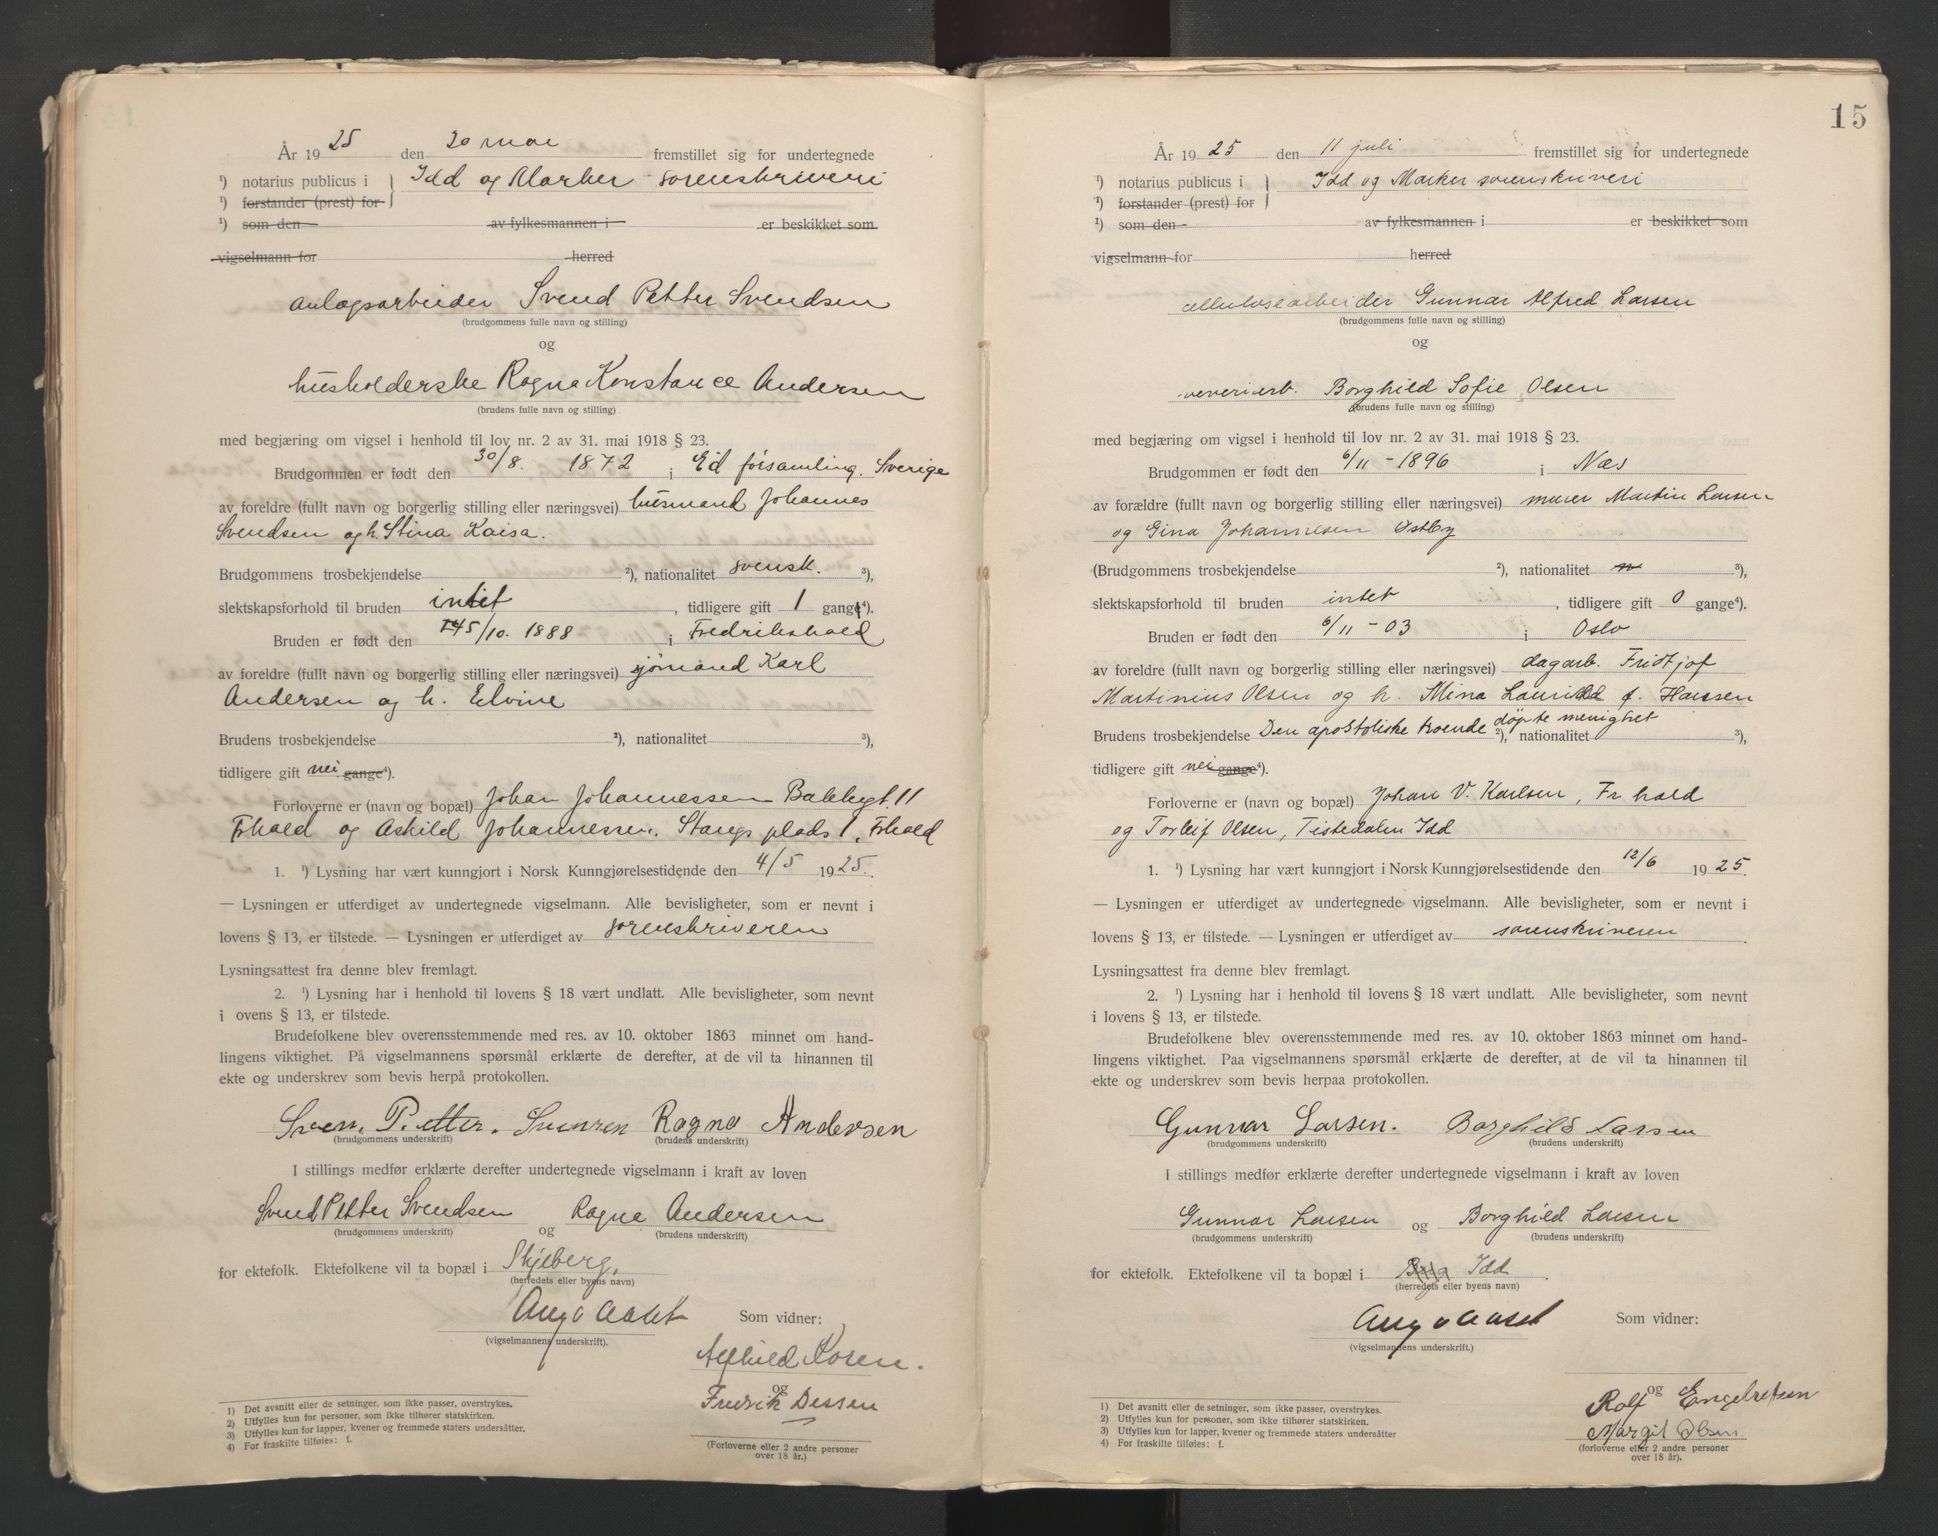 År 1925 den 20 mai fremstillet sig for undertegnede
¹) notarius publicus i } Idd og Marker sorenskriveri
¹) forstander (prest) for
¹) som den av fylkesmannen i er beskikket som
vigselmann for herred
anlægsarbeider Svend Petter Svendsen
(brudgommens fulle navn og stilling)
og
husholderske Ragna Konstance Andersen
(brudens fulle navn og stilling)
med begjæring om vigsel i henhold til lov nr. 2 av 31. mai 1918 § 23.
Brudgommen er født den 30/8. 1872 i Ed församling. Sverige
av foreldre (fullt navn og borgerlig stilling eller næringsvei) husmand Johannes
Svendsen og h. Stina Kaisa.
Brudgommens trosbekjendelse ²), nationalitet svensk. ³),
slektskapsforhold til bruden intet, tidligere gift 1 gange⁴).
Bruden er født den 5/10. 1888 i Fredrikshald
av foreldre (fullt navn og borgerlig stilling eller næringsvei) sjømand Karl
Andersen og h. Elvine
Brudens trosbekjendelse ²), nationalitet ³),
tidligere gift nei gange⁴).
Forloverne er (navn og bopæl) Johan Johannessen Bakkegt. 11
Frhald og Askild Johannessen. Stangs plads 1, Frhald
1. ¹) Lysning har vært kunngjort i Norsk Kunngjørelsestidende den 4/5 1925.
— Lysningen er utferdiget av undertegnede vigselmann. Alle bevisligheter, som er nevnt i
lovens § 13, er tilstede. — Lysningen er utferdiget av sorenskriveren
Lysningsattest fra denne blev fremlagt.
2. ¹) Lysning har i henhold til lovens § 18 vært undlatt. Alle bevisligheter, som nevnt
i ovens § 13, er tilstede.
Brudefolkene blev overensstemmende med res. av 10. oktober 1863 minnet om hand-
lingens viktighet. På vigselmannens spørsmål erklærte de derefter, at de vil ta hinannen til
ekte og underskrev som bevis herpå protokollen.
Sven Petter Ragna Andersen
(brudgommens underskrift) (brudens underskrift)
I stillings medfør erklærte derefter undertegnede vigselmann i kraft av loven
Svend Petter Svendsen og Ragna Andersen
(brudgommens underskrift) (brudens underskrift)
for ektefolk. Ektefolkene vil ta bopæl i Skjeberg.
(herredets eller byens navn)
Aug Aaset Som vidner:
(vigselmannens underskrift).
Alfhild Koren.
og
Fredrik Dessen
(Forloverne eller 2 andre personer
over 18 år.)
1) Det avsnitt eller de setninger, som ikke passer, overstrykes.
2) Utfylles kun for personer, som ikke tilhører statskirken.
3) Utfylles kun for lapper, kvener og fremmede staters undersåtter.
4) For fraskilte tilføies: f.
15
År 1925 den 11 juli fremstillet sig for undertegnede
¹) notarius publicus i } Idd og Marker sorenskriveri
¹) forstander (prest) for
¹) som den av fylkesmannen i er beskikket som
vigselmann for herred
cellulosearbeider Gunnar Alfred Larsen
(brudgommens fulle navn og stilling)
og
veveriarb. Borghild Sofie Olsen
(brudens fulle navn og stilling)
med begjæring om vigsel i henhold til lov nr. 2 av 31. mai 1918 § 23.
Brudgommen er født den 6/11 - 1896 i Næs
av forældre (fullt navn og borgerlig stilling eller næringsvei) murer Martin Larsen
og Gina Johannesen Østby
(Brudgommens trosbekjendelse ²), nationalitet ³),
slektskapsforhold til bruden intet, tidligere gift 0 gange⁴).
Bruden er født den 6/11 - 03 i Oslo
av foreldre (fullt navn og borgerlig stilling eller næringsvei) dagarb. Fridtjof
Martinius Olsen og h. Mina f. Hansen
Brudens trosbekjendelse Den apostoliske troende døpte menighet ²), nationalitet ³),
tidligere gift nei gange⁴).
Forloverne er (navn og bopæl) Johan V. Karlsen, Fr.hald
og Torleif Olsen, Tistedalen Idd
1. ¹) Lysning har vært kunngjort i Norsk Kunngjørelsestidende den 12/6 1925.
— Lysningen er utferdiget av undertegnede vigselmann. Alle bevisligheter, som er nevnt i
lovens § 13, er tilstede. — Lysningen er utferdiget av sorenskriveren
Lysningsattest fra denne blev fremlagt.
2. ¹) Lysning har i henhold til lovens § 18 vært undlatt. Alle bevisligheter, som nevnt
i lovens § 13, er tilstede.
Brudefolkene blev overensstemmende med res. av 10. oktober 1863 minnet om hand-
lingens viktighet. Paa vigselmannens spørsmål erklærte de derefter, at de vil ta hinannen til
ekte og underskrev som bevis herpaa protokollen.
Gunnar Larsen. Borghild Larsen
(brudgommens underskrift) (brudens underskrift)
I stillings medfør erklærte derefter undertegnede vigselmann i kraft av loven
Gunnar Larsen og Borghild Larsen
(brudgommens underskrift) (brudens underskrift)
for ektefolk. Ektefolkene vil ta bopæl i Idd.
(herredets eller byens navn)
Aug Aaset Som vidner:
(vigselmannens underskrift.)
og
Rolf Engebretsen
Margit Olsen
(forloverne eller 2 andre personer
over 18 år).
1) Det avsnitt eller de setninger, som ikke passer, overstrykes.
2) Utfylles kun for personer, som ikke tilhører statskirken.
3) Utfylles kun for lapper, kvener og fremmede staters undersåtter
4) For fraskilte tilføies: f.